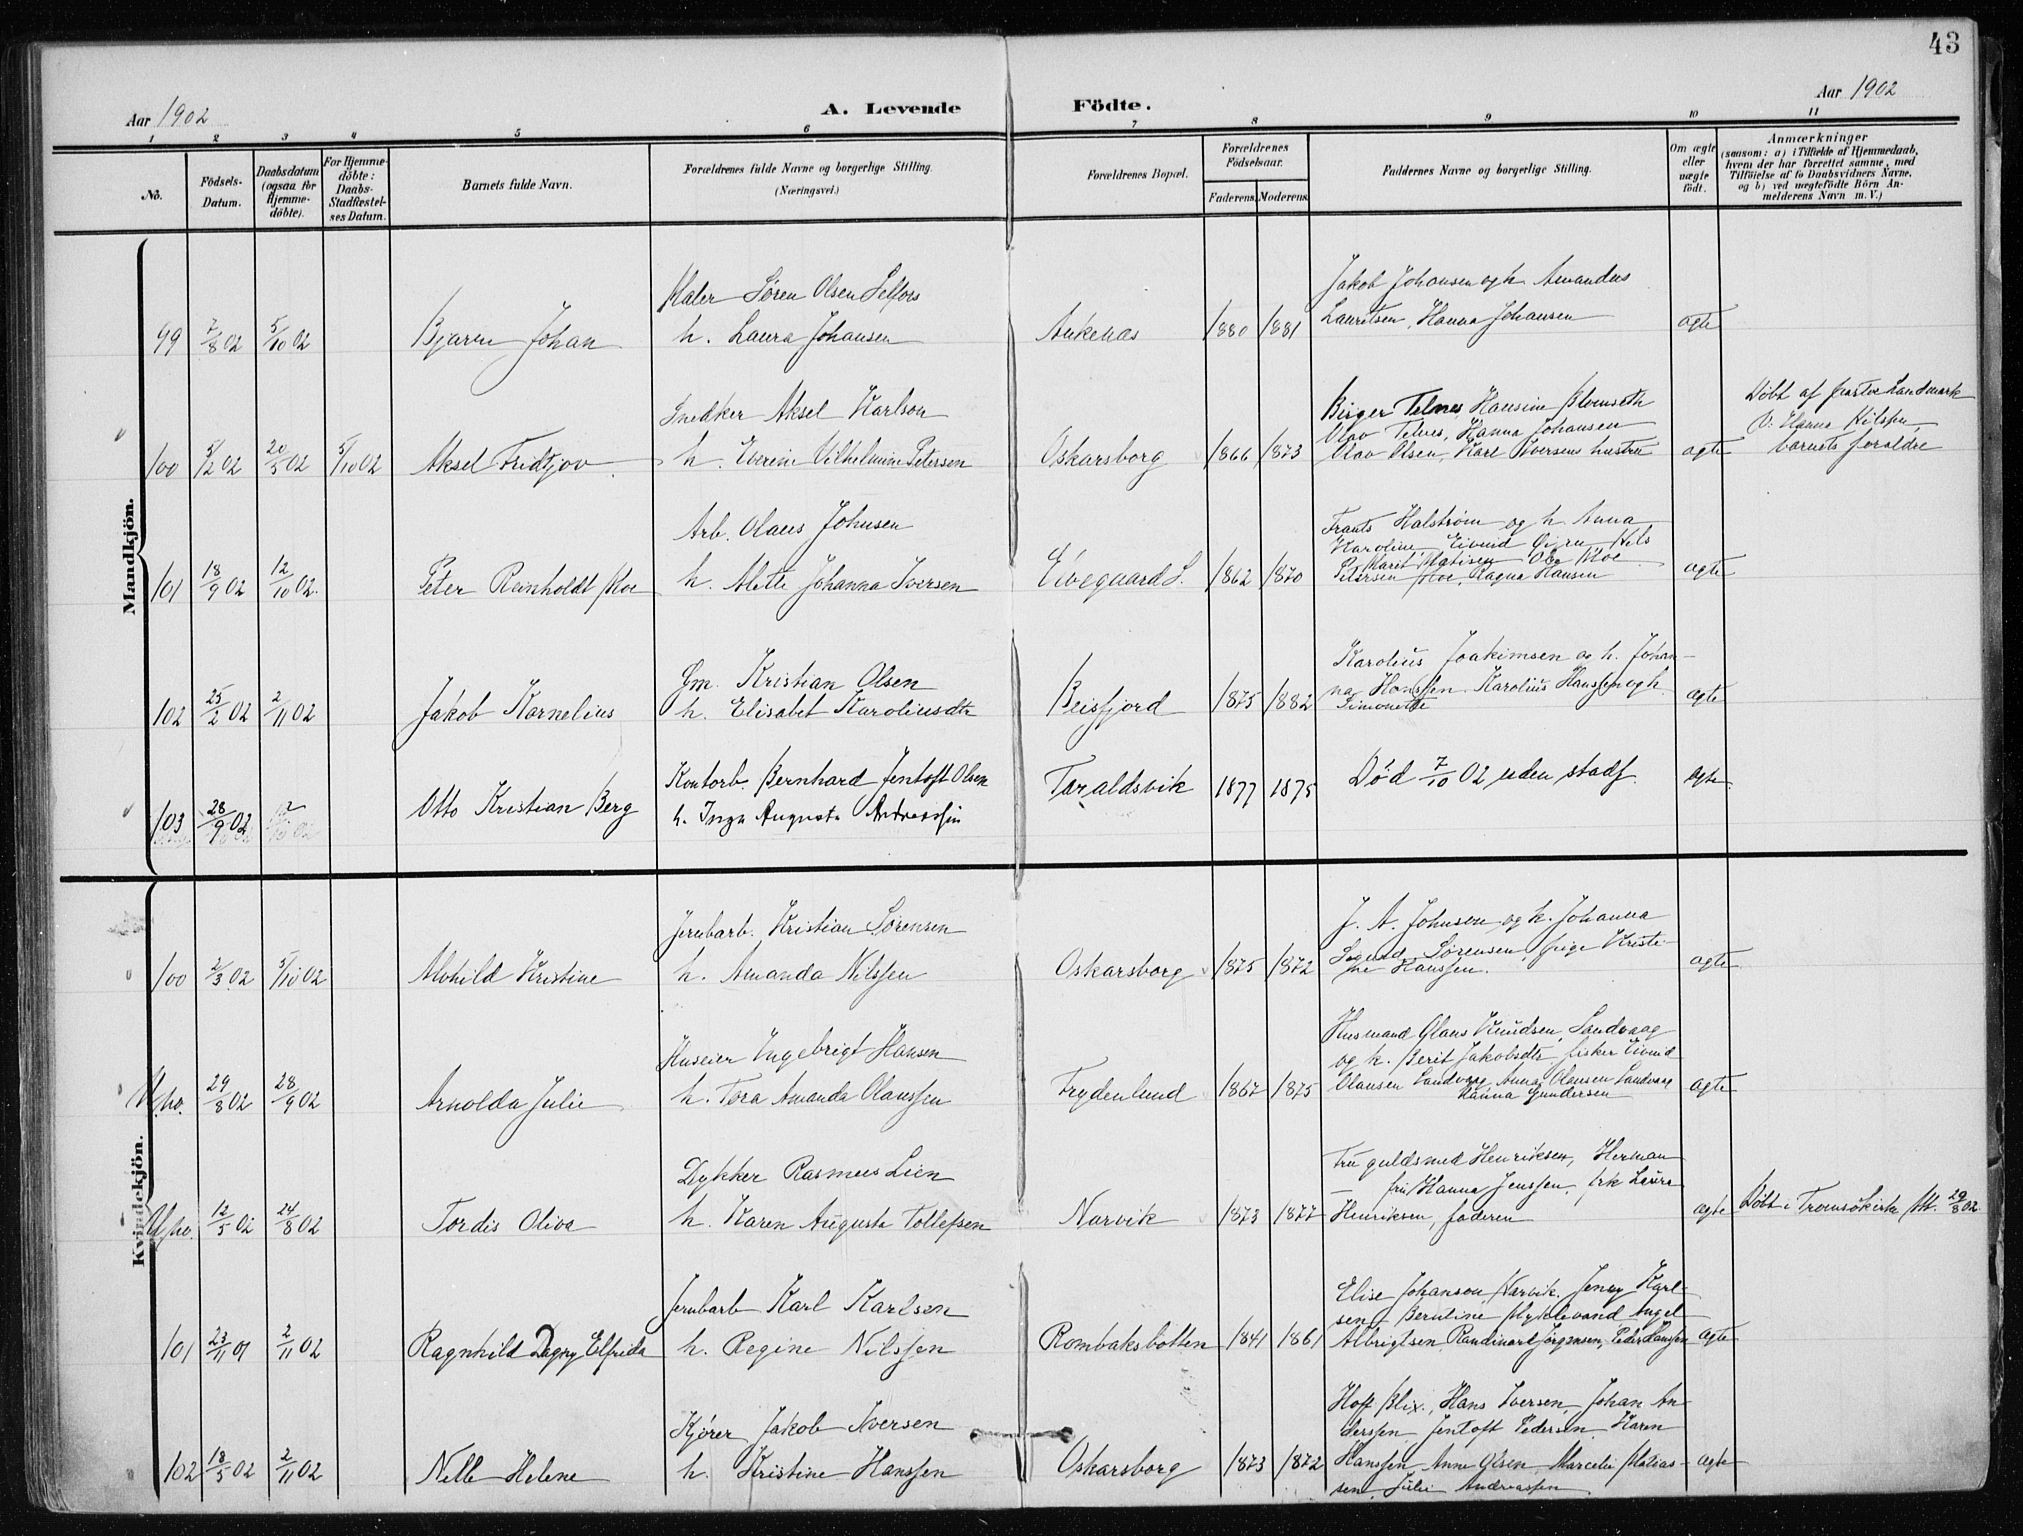 43
Aar 1902
A. Levende Födte.
Aar 1902
1 2 3 4 5 6 7 8 9 10 11
No.
Födsels-Datum.
Daabsdatum (ogsaa for Hjemme-döbte).
For Hjemme-döbte: Daabs-Stadfæstel-ses Datum.
Barnets fulde Navn.
Forældrenes fulde Navne og borgerlige Stilling. (Næringsvei.)
Forældrenes Bopæl.
Forældrenes Födselsaar.
Faderens. Moderens.
Faddernes Navne og borgerlige Stilling.
Om ægte eller uægte födt.
Anmærkninger
(saasom: a) i Tilfælde af Hjemmedaab,
hvem der har forrettet samme, med
Tilföielse af to Daabsvidners Navne,
og b) ved uægtefödte Börn An-
melderens Navn m. V.)
Mandkjön.
Maler Søren Olsen Selfors
Jakob Johansen og h Amandus
99 7/8 02 5/10 02 Bjarne Johan h. Laura Johansen Ankenas 1880 1881 Lauritsen, Hanna Johansen ægte
Snedker Aksel Karlson
Birger Telnes, Hansine
Døbt af Landmark
Olav Telnes, Hanna Johansen
V. Hanna
100 5/2 02 20/5 02 5/10 02 Aksel Fridtjov h. Everine Vilhelmine Petersen Oskarsborg 1866 1873 Olav Olsen, Karl Iversens hustru ægte barnets forældre
Arb. Olaus Johnsen
Frants Halstrøm og h. Anna
Karoline, Eivind
Marit Matisen
101 18/9 02 12/10 02. Peter Reinholdt Moe h. Mette Johanna Iversen 1862 1870 Petersen Moe, Ragna Hansen ægte
Gm. Kristian Olsen
Karolius Joakimsen og h. Johan-
102 25/2 02 2/11 02 Jakob Kornelius h. Elisabet Karoliusdtr Beisfjord 1875 1882 na Hanssen Karolius Hanssen og h. ægte
Simonette
Kontorb. Bernhard Jentoft Olsen
103 28/9 02 Otto Kristian Berg h. Inga Augusta Andreassen Taraldsvik 1877 1875 Død 7/10 02 uden stadf. ægte
Kvindekjön.
Jernbarb. Kristian Sørensen
J. A. Johnsen og h. Johanna
100 2/3 02 5/10 02 Alvhild Kristine h. Amanda Nilssen Oskarsborg 1875 1872 Sigurd Sørensen, pige Kristi-
ne Hanssen. ægte
Huseier Ingebrigt Hansen
Husmand Olaus Knudsen, Sandvaag
og h. Berit Jakobsdtr, fisker Eivind
29/8 02 28/9 02 Arnolda Julie h. Tora Amanda Olaussen Frydenlund 1867 1875 Olausen Sandvaag, Anna Olausen Sandvaag ægte
Hanna Gundersen
Dykker Rasmus Lien
Fru guldsmed Henriksen, Herman
fru Hanna Jenssen, frk Laura
12/5 02 24/8 02 Tordis Oliva h. Karen Augusta Tollefsen Narvik 1873 1877 Henriksen, faderen ægte Døbt i Tromsø kirke 29/8 02
Jernbarb Karl Karlsen
Elise Johanson Narvik. Jenny Karl-
sen, Berntine Myklevand Angel
101 23/11 01 2/11 02 Ragnhild Dagny Elfrida h. Regine Nilssen Rombaksbotten 1841 1861 Albrigtsen Randinart Jørgensen, Peder Hanssen ægte
Kjører Jakob Iversen
Hoff Blix, Hans Iversen, Johan An-
derssen, Jentoft Pedersen, Karen
102 18/5 02 2/11 02 Nelle Helene h. Kristine Hanssen Oskarsborg 1873 1872 Hanssen Anne Olsen, Marcelie Matias- ægte
sen, Julie Andreassen